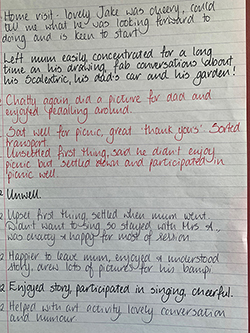 Home visit - lovely Jake was cheery, could
tell me what he was looking forward to
doing and is keen to start
Left mum easily concentrated for a long
time on his drawing, fab conversations about
his Scalextric, his dad's car and his garden!
Chatty again, did a picture for dad and
enjoyed pedalling around.
Sat well for picnic, great 'thank yous' Sorted
transport.
Unsettled first thing, said he didn't enjoy
picnic but settled down and participated in
picnic well.
2 Unwell.
2 Upset first thing, settled when mum went.
Didn't want to sing so stayed with Mrs A.,
was chatty & happy for most of session
2 Happier to leave mum, enjoyed & understood
story, drew lots of pictures for his bampi
2 Enjoyed story, participated in singing, cheerful.
2 Helped with art activity lovely conversation
and humour